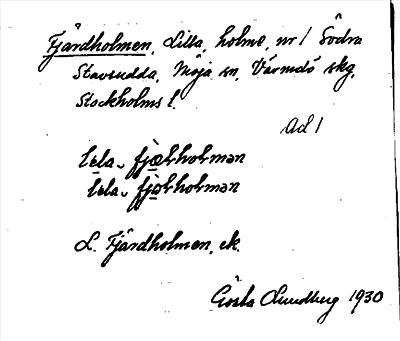 Fjärdholmen, Lilla, holme, nr 1 Södra
Stavsudda, Möja sn, Värmdö skg,
Stockholms l.
Ad 1
lela fjærholmən
lela fjærholmən
L. Fjärdholmen, ek.
Gösta Lundberg 1930